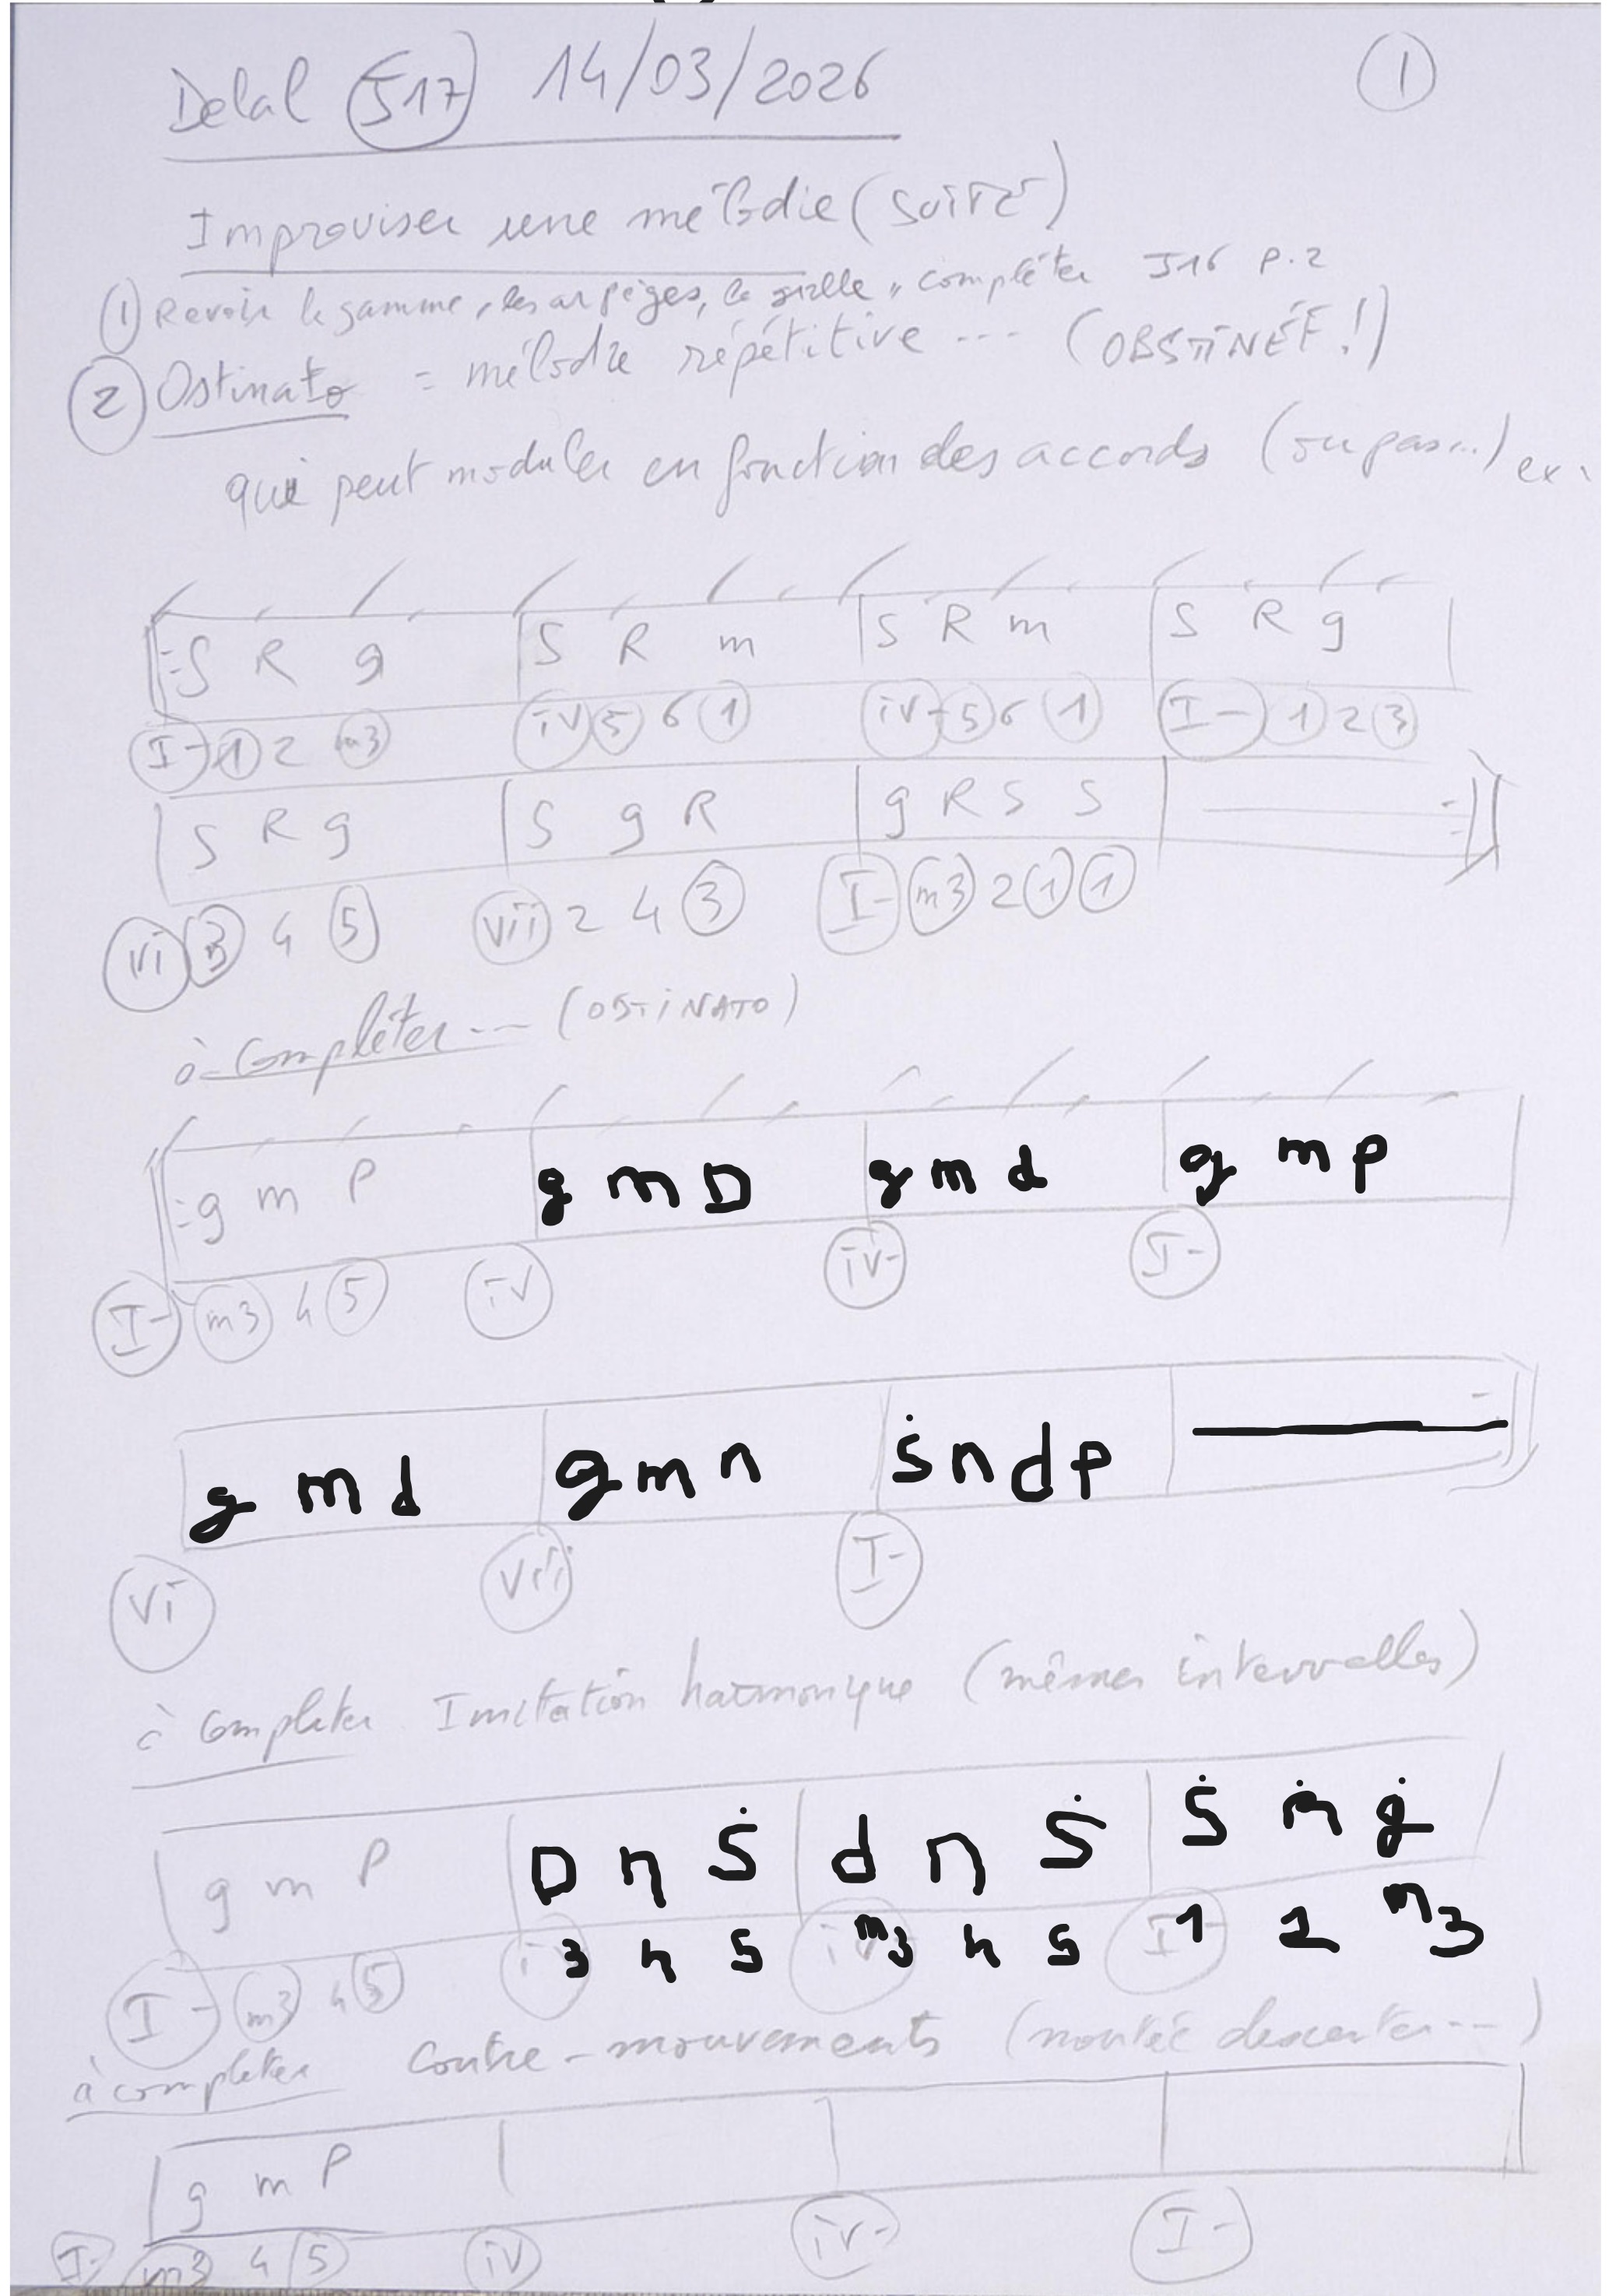 Delal (J17) 14/03/2026 ①
Improviser une mélodie (SUITE)
① Revoir la gamme, les arpèges, la grille, compléter J16 P.2
② Ostinato = mélodie répétitive --- (OBSTINÉE!)
qui peut moduler en fonction des accords (ou pas...) ex:
S R g | S R m | S R m | S R g |
I- 1 2 m3 iv 5 6 1 iv- 5 6 1 I- 1 2 3
S R g | S g R | g R S S | —
vi 3 4 5 vii 2 4 3 I- m3 2 1 1
à compléter --- (OSTINATO)
g m P | g m D | g m d | g m p |
I- m3 4 5 iv iv- I-
g m d | g m n | Ṡ n d p | —
vi vii I-
à compléter Imitation harmonique (mêmes intervalles)
g m P | D n Ṡ | d n Ṡ | Ṡ ṁ ġ
I- m3 4 5 3 4 5 m3 4 5 I- 1 2 m3
à compléter Contre-mouvements (montée descente---)
g m P
I- m3 4 5 iv iv- I-